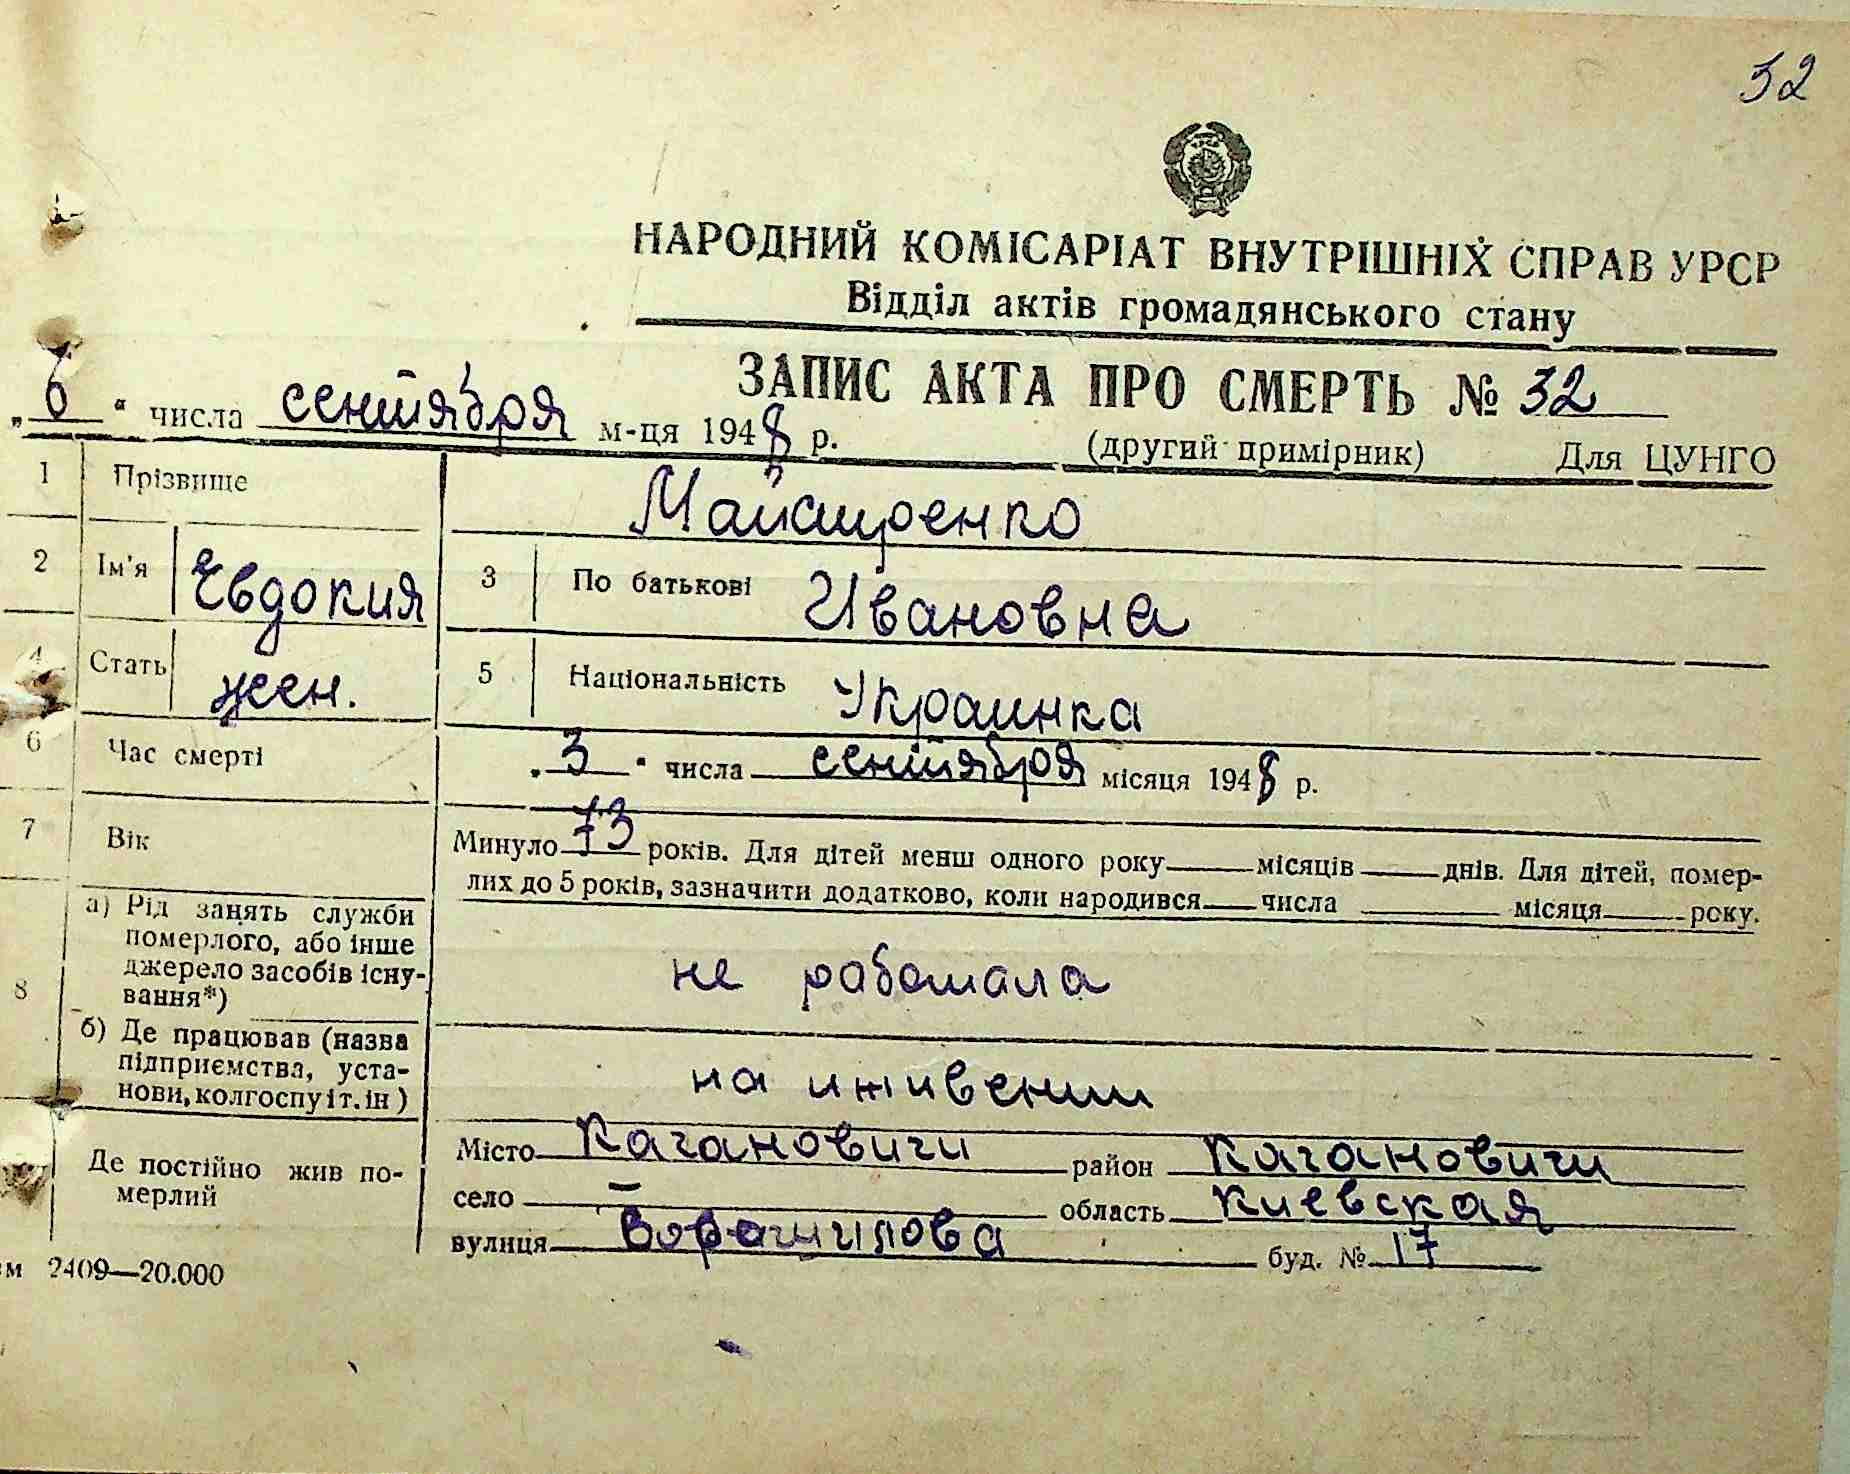 32
НАРОДНИЙ КОМІСАРІАТ ВНУТРІШНІХ СПРАВ УРСР
Відділ актів громадянського стану
ЗАПИС АКТА ПРО СМЕРТЬ № 32
„6“ числа сентября м-ця 1948 р. (другий примірник) Для ЦУНГО
1 Прізвище Майстренко
2 Ім'я Евдокия 3 По батькові Ивановна
4 Стать жен. 5 Національність Украинка
6 Час смерті „3“ числа сентября місяця 1948 р.
7 Вік Минуло 73 років. Для дітей менш одного року місяців днів. Для дітей, помер-
лих до 5 років, зазначити додатково, коли народився числа місяця року.
8 а) Рід занять служби
померлого, або інше
джерело засобів існу-
вання*) не работала
б) Де працював (назва
підприємства, уста-
нови, колгоспу і т. ін) на иживении
Де постійно жив по-
мерлий
Місто Кагановичи район Кагановичи
село — область Киевская
вулиця Ворошилова буд. № 17
зм 2409—20.000